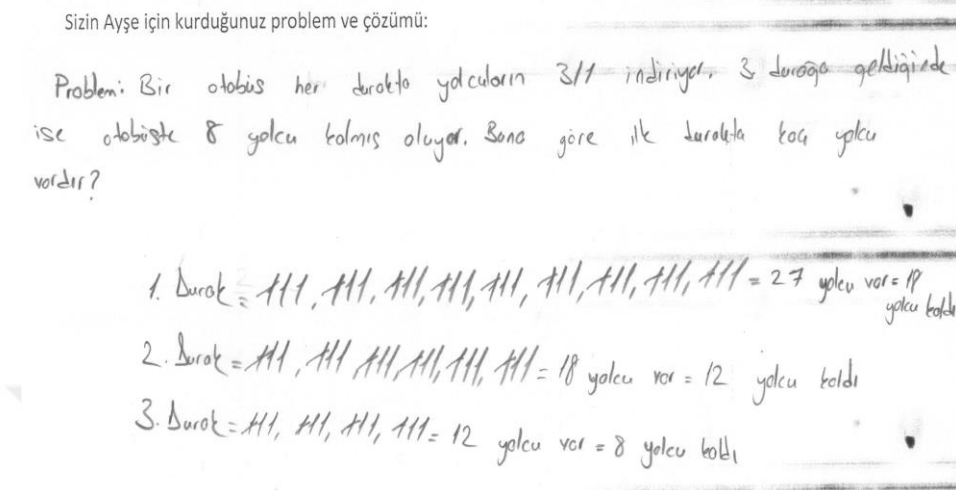 Sizin Ayşe için kurduğunuz problem ve çözümü:
Problem: Bir otobüs her durakta yolcuların 3/1 indiriyor. 3 durağa geldiğinde
ise otobüste 8 yolcu kalmış oluyor. Bona göre ilk durakta kaç yolcu
vardır?
1. Durak = 111, 111, 111, 111, 111, 111, 111, 111, 111 = 27 yolcu var = 18
yolcu kaldı
2. Durak = 111, 111 111, 111, 111, 111 = 18 yolcu var = 12 yolcu kaldı
3. Durak = 111, 111, 111, 111 = 12 yolcu var = 8 yolcu kaldı